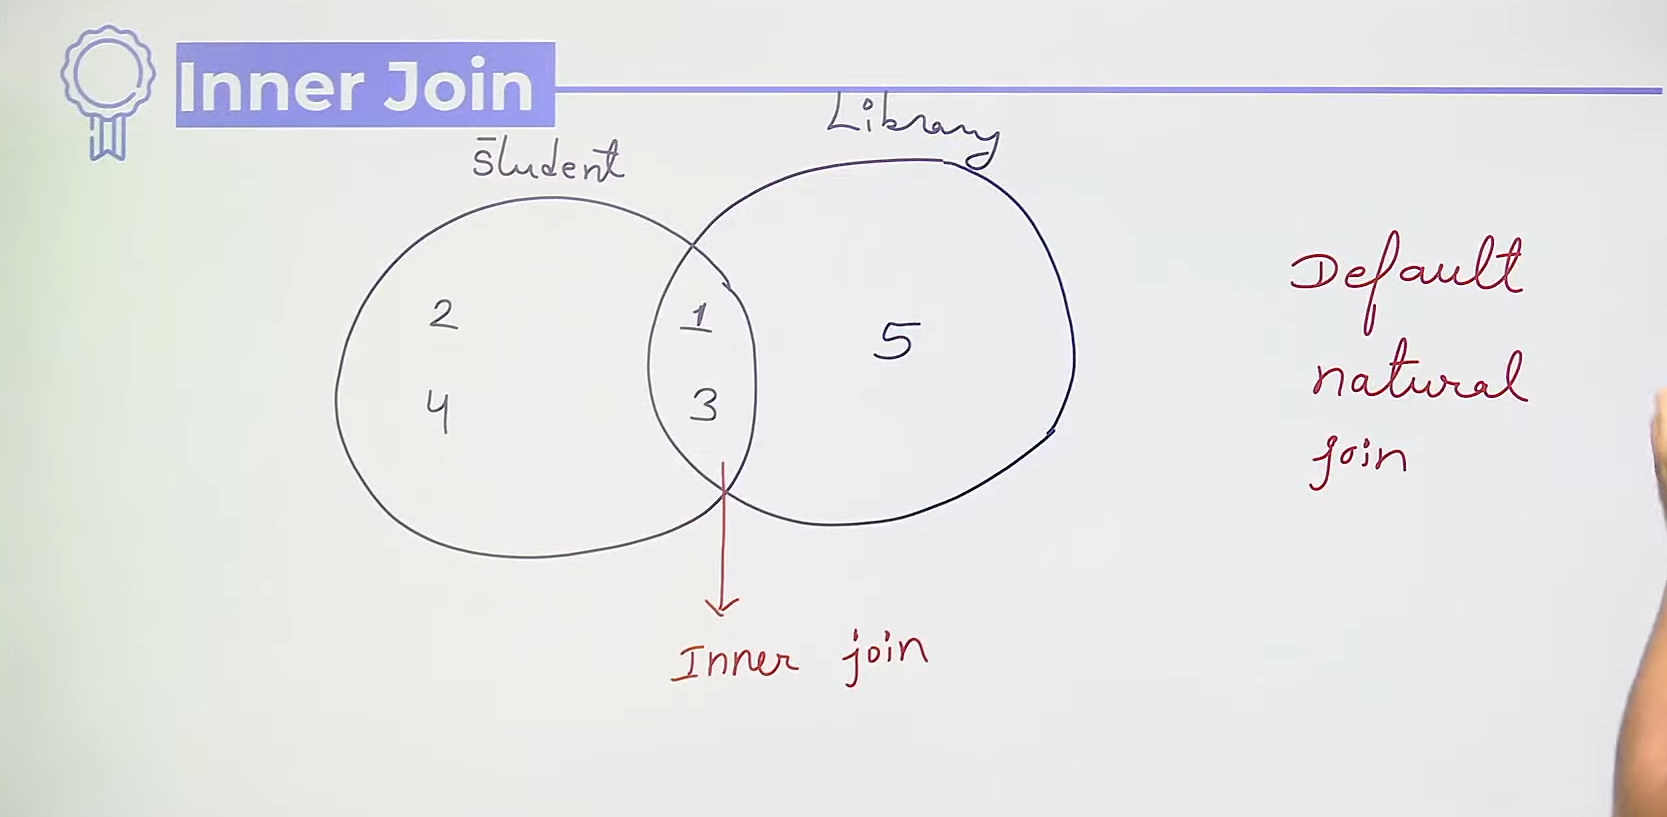 Inner Join
Student
Library
2
1
5
4
3
Inner join
Default
natural
join